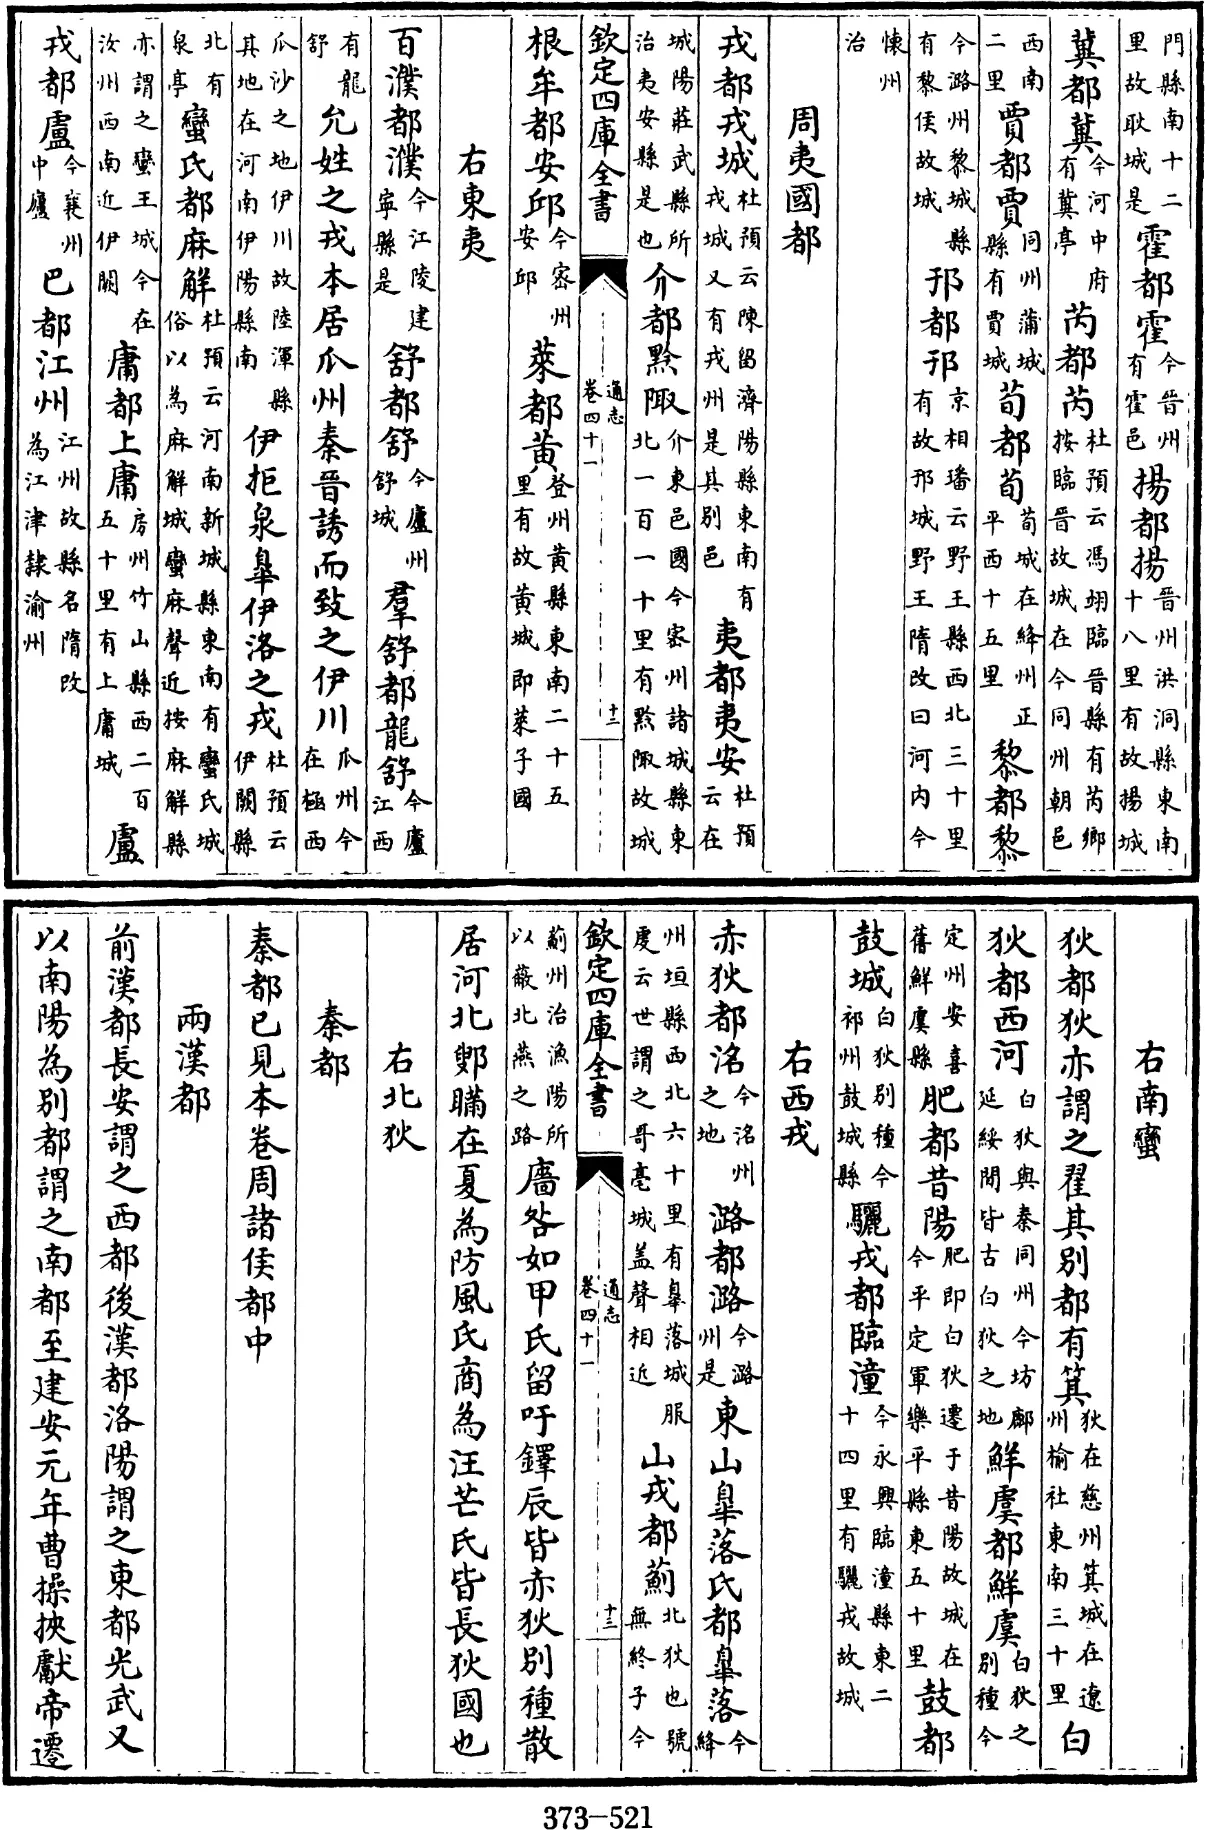 門縣南十二里故耿城是霍都霍今晉州有霍邑揚都揚晉州洪洞縣東南十八里有故揚城
冀都冀今河中府有冀亭芮都芮杜預云馮翊臨晉縣有芮鄉按臨晉故城在今同州朝邑
西南二里賈都賈同州蒲城縣有賈城荀都荀荀城在絳州正平西十五里黎都黎
今潞州黎城縣有黎侯故城邘都邘京相璠云野王縣西北三十里有故邘城野王隋改曰河內今
懷州治
周夷國都
戎都戎城杜預云陳留濟陽縣東南有戎城又有戎州是其別邑夷都夷安杜預云在
城陽莊武縣所治夷安縣是也介都黔陬介東邑國今密州諸城縣東北一百一十里有黔陬故城
欽定四庫全書 通志卷四十一 十二
根牟都安邱今密州安邱萊都黃登州黃縣東南二十五里有故黃城即萊子國
右東夷
百濮都濮今江陵建寧縣是舒都舒今廬州舒城羣舒都龍舒今廬江西
有龍舒允姓之戎本居瓜州秦晉誘而致之伊川瓜州今在極西
瓜沙之地伊川故陸渾縣其地在河南伊陽縣南伊拒泉臯伊洛之戎杜預云伊闕縣
北有泉亭蠻氏都麻解杜預云河南新城縣東南有蠻氏城俗以為麻解城蠻麻聲近按麻解縣
亦謂之蠻王城今在汝州西南近伊闕庸都上庸房州竹山縣西二百五十里有上庸城盧
戎都盧今襄州中廬巴都江州江州故縣名隋改為江津隸渝州
右南蠻
狄都狄亦謂之翟其別都有箕狄在慈州箕城在遼州榆社東南三十里白
狄都西河白狄與秦同州今坊鄜延綏間皆古白狄之地鮮虞都鮮虞白狄之別種今
定州安喜舊鮮虞縣肥都昔陽肥即白狄遷于昔陽故城在今平定軍樂平縣東五十里鼓都
鼓城白狄別種今祁州鼓城縣驪戎都臨潼今永興臨潼縣東二十四里有驪戎故城
右西戎
赤狄都洺今洺州之地潞都潞今潞州是東山臯落氏都臯落今絳
州垣縣西北六十里有臯落城服虔云世謂之哥亳城盖聲相近山戎都薊北狄也號無終子今
欽定四庫全書 通志卷四十一 十三
薊州治漁陽所以蔽北燕之路廧咎如甲氏留吁鐸辰皆赤狄別種散
居河北鄋瞞在夏為防風氏商為汪芒氏皆長狄國也
右北狄
秦都
秦都已見本卷周諸侯都中
兩漢都
前漢都長安謂之西都後漢都洛陽謂之東都光武又
以南陽為別都謂之南都至建安元年曹操挾獻帝遷
373-521